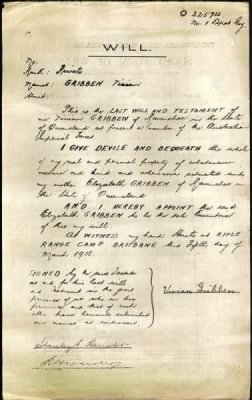 No 1 Depot Bn.
WILL.
No.
Rank: Private
Name: GRIBBEN Vivian
Unit:
This is the LAST WILL AND TESTAMENT of
me Vivian GRIBBEN of in the State
of Queensland at present a member of the Australian
Imperial Force
I GIVE DEVISE AND BEQUEATH the whole
of my real and personal property of whatsoever
nature and kind and wheresoever situated unto
my mother Elizabeth GRIBBEN of in
the State of Queensland
AND I HEREBY APPOINT the said
Elizabeth GRIBBEN to be the sole Executrix
of this my will.
AS WITNESS my hand hereto at RIFLE
RANGE CAMP BRISBANE this Fifth day of
March 1918.
SIGNED by the said Testator
as and for his last will
in the joint
presence of us who in his
presence and that of each
other have hereunto subscribed
our names as witnesses
Vivian Gribben